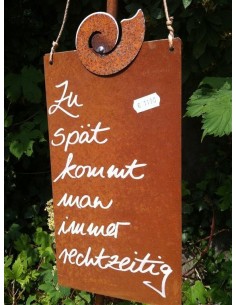 Zu
spät
kommt
man
immer
rechtzeitig